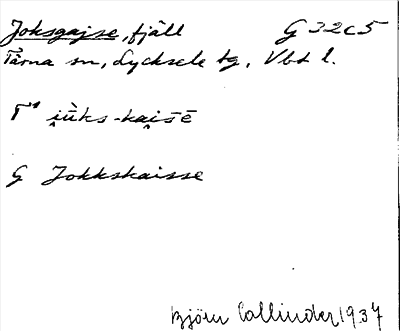 Joksgajse, fjäll G 32c5
Tärna sn, Lycksele tg, Vbt l.
i̯ùks-kai̯sē
G Jokkskaisse
Björn Collinder 1937